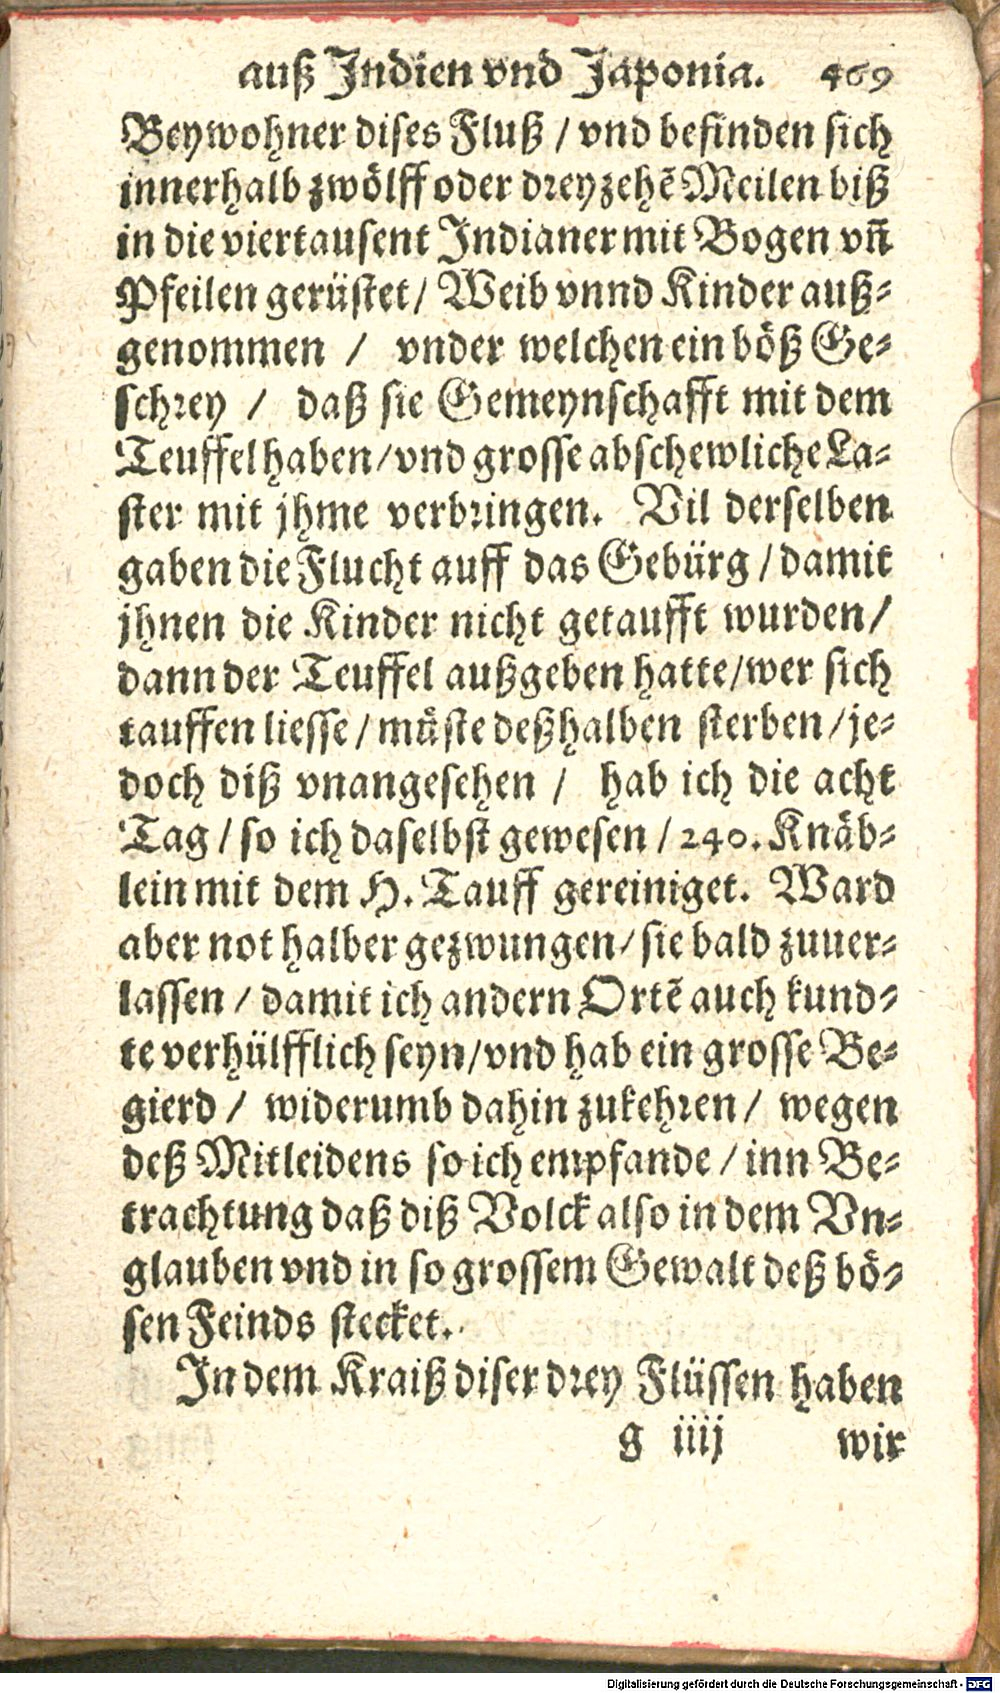 auß Jndien vnd Japonia. 469
Beywohner dises Fluß / vnd befinden sich
innerhalb zwölff oder dreyzehẽ Meilen biß
in die viertausent Jndianer mit Bogen vñ
Pfeilen gerüstet / Weib vnnd Kinder auß-
genommen / vnder welchen ein böß Ge-
schrey / daß sie Gemeynschafft mit dem
Teuffel haben / vnd grosse abschewliche La-
ster mit jhme verbringen. Vil derselben
gaben die Flucht auff das Gebürg / damit
jhnen die Kinder nicht getaufft wurden /
dann der Teuffel außgeben hatte / wer sich
tauffen liesse / müste deßhalben sterben / je-
doch diß vnangesehen / hab ich die acht
Tag / so ich daselbst gewesen / 240. Knäb-
lein mit dem H. Tauff gereiniget. Ward
aber not halber gezwungen / sie bald zuuer-
lassen / damit ich andern Ortẽ auch kund-
te verhülfflich seyn / vnd hab ein grosse Be-
gierd / widerumb dahin zukehren / wegen
deß Mitleidens so ich empfande / inn Be-
trachtung daß diß Volck also in dem Vn-
glauben vnd in so grossem Gewalt deß bö-
sen Feinds stecket.
Jn dem Kraiß diser drey Flüssen haben
g iiij wir
Digitalisierung gefördert durch die Deutsche Forschungsgemeinschaft - DFG